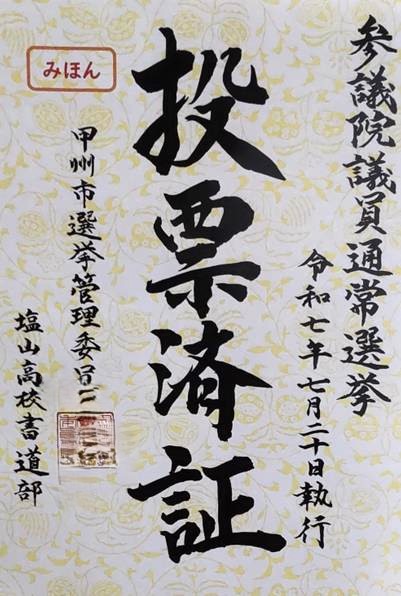 参議院議員通常選挙
令和七年七月二十日執行
投票済証
みほん
甲州市選挙管理委員
塩山高校書道部